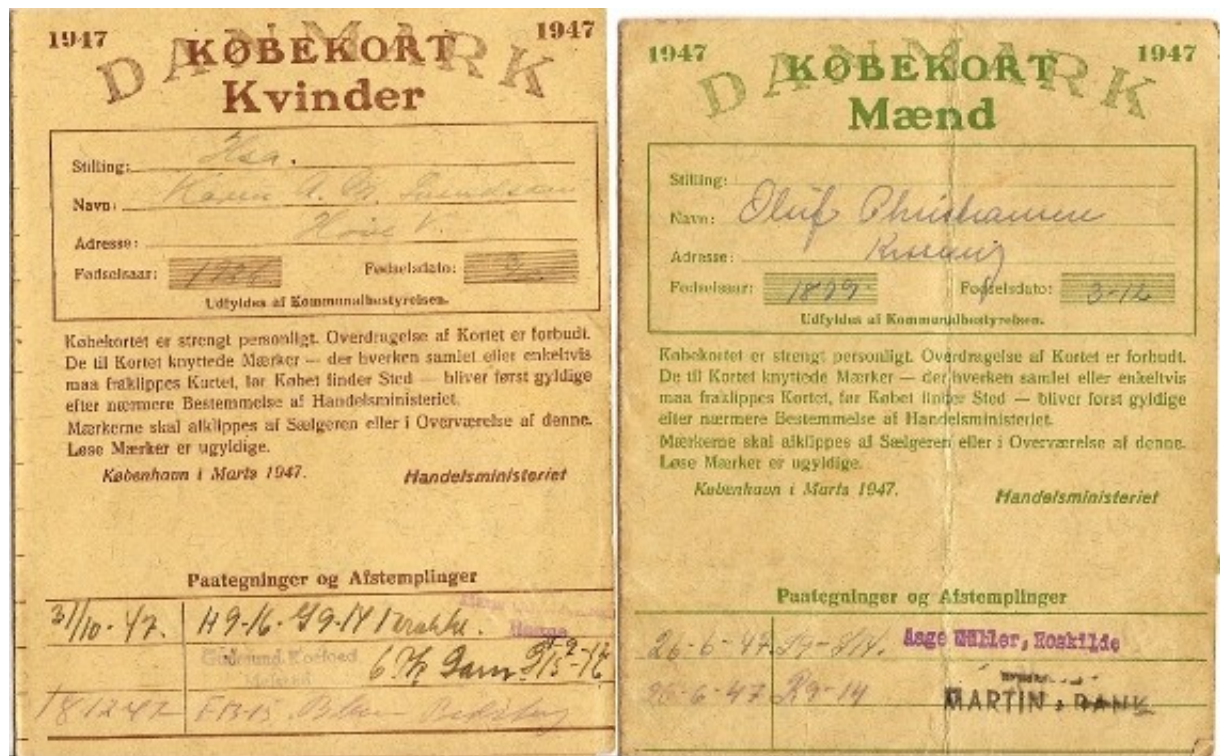 1947 1947
DANMARK
KØBEKORT
Kvinder
Stilling: Hsa.
Navn: Karen A. M.
Adresse:
Fødselsaar: Fødselsdato:
Udfyldes af Kommunalbestyrelsen.
Købekortet er strengt personligt. Overdragelse af Kortet er forbudt.
De til Kortet knyttede Mærker — der hverken samlet eller enkeltvis
maa fraklippes Kortet, før Købet finder Sted — bliver først gyldige
efter nærmere Bestemmelse af Handelsministeriet.
Mærkerne skal afklippes af Sælgeren eller i Overværelse af denne.
Løse Mærker er ugyldige.
København i Marts 1947. Handelsministeriet
Paategninger og Afstemplinger
31/10-47. H9-16. G9-14
Gudmund Kofoed
18 12 47
1947 1947
DANMARK
KØBEKORT
Mænd
Stilling:
Navn: Oluf Christiansen
Adresse:
Fødselsaar: 1879 Fødselsdato: 3-12
Udfyldes af Kommunalbestyrelsen.
Købekortet er strengt personligt. Overdragelse af Kortet er forbudt.
De til Kortet knyttede Mærker — der hverken samlet eller enkeltvis
maa fraklippes Kortet, før Købet finder Sted — bliver først gyldige
efter nærmere Bestemmelse af Handelsministeriet.
Mærkerne skal afklippes af Sælgeren eller i Overværelse af denne.
Løse Mærker er ugyldige.
København i Marts 1947. Handelsministeriet
Paategninger og Afstemplinger
26-6-47 Aage Müller, Roskilde
26-6-47 R9-14 MARTIN BANK